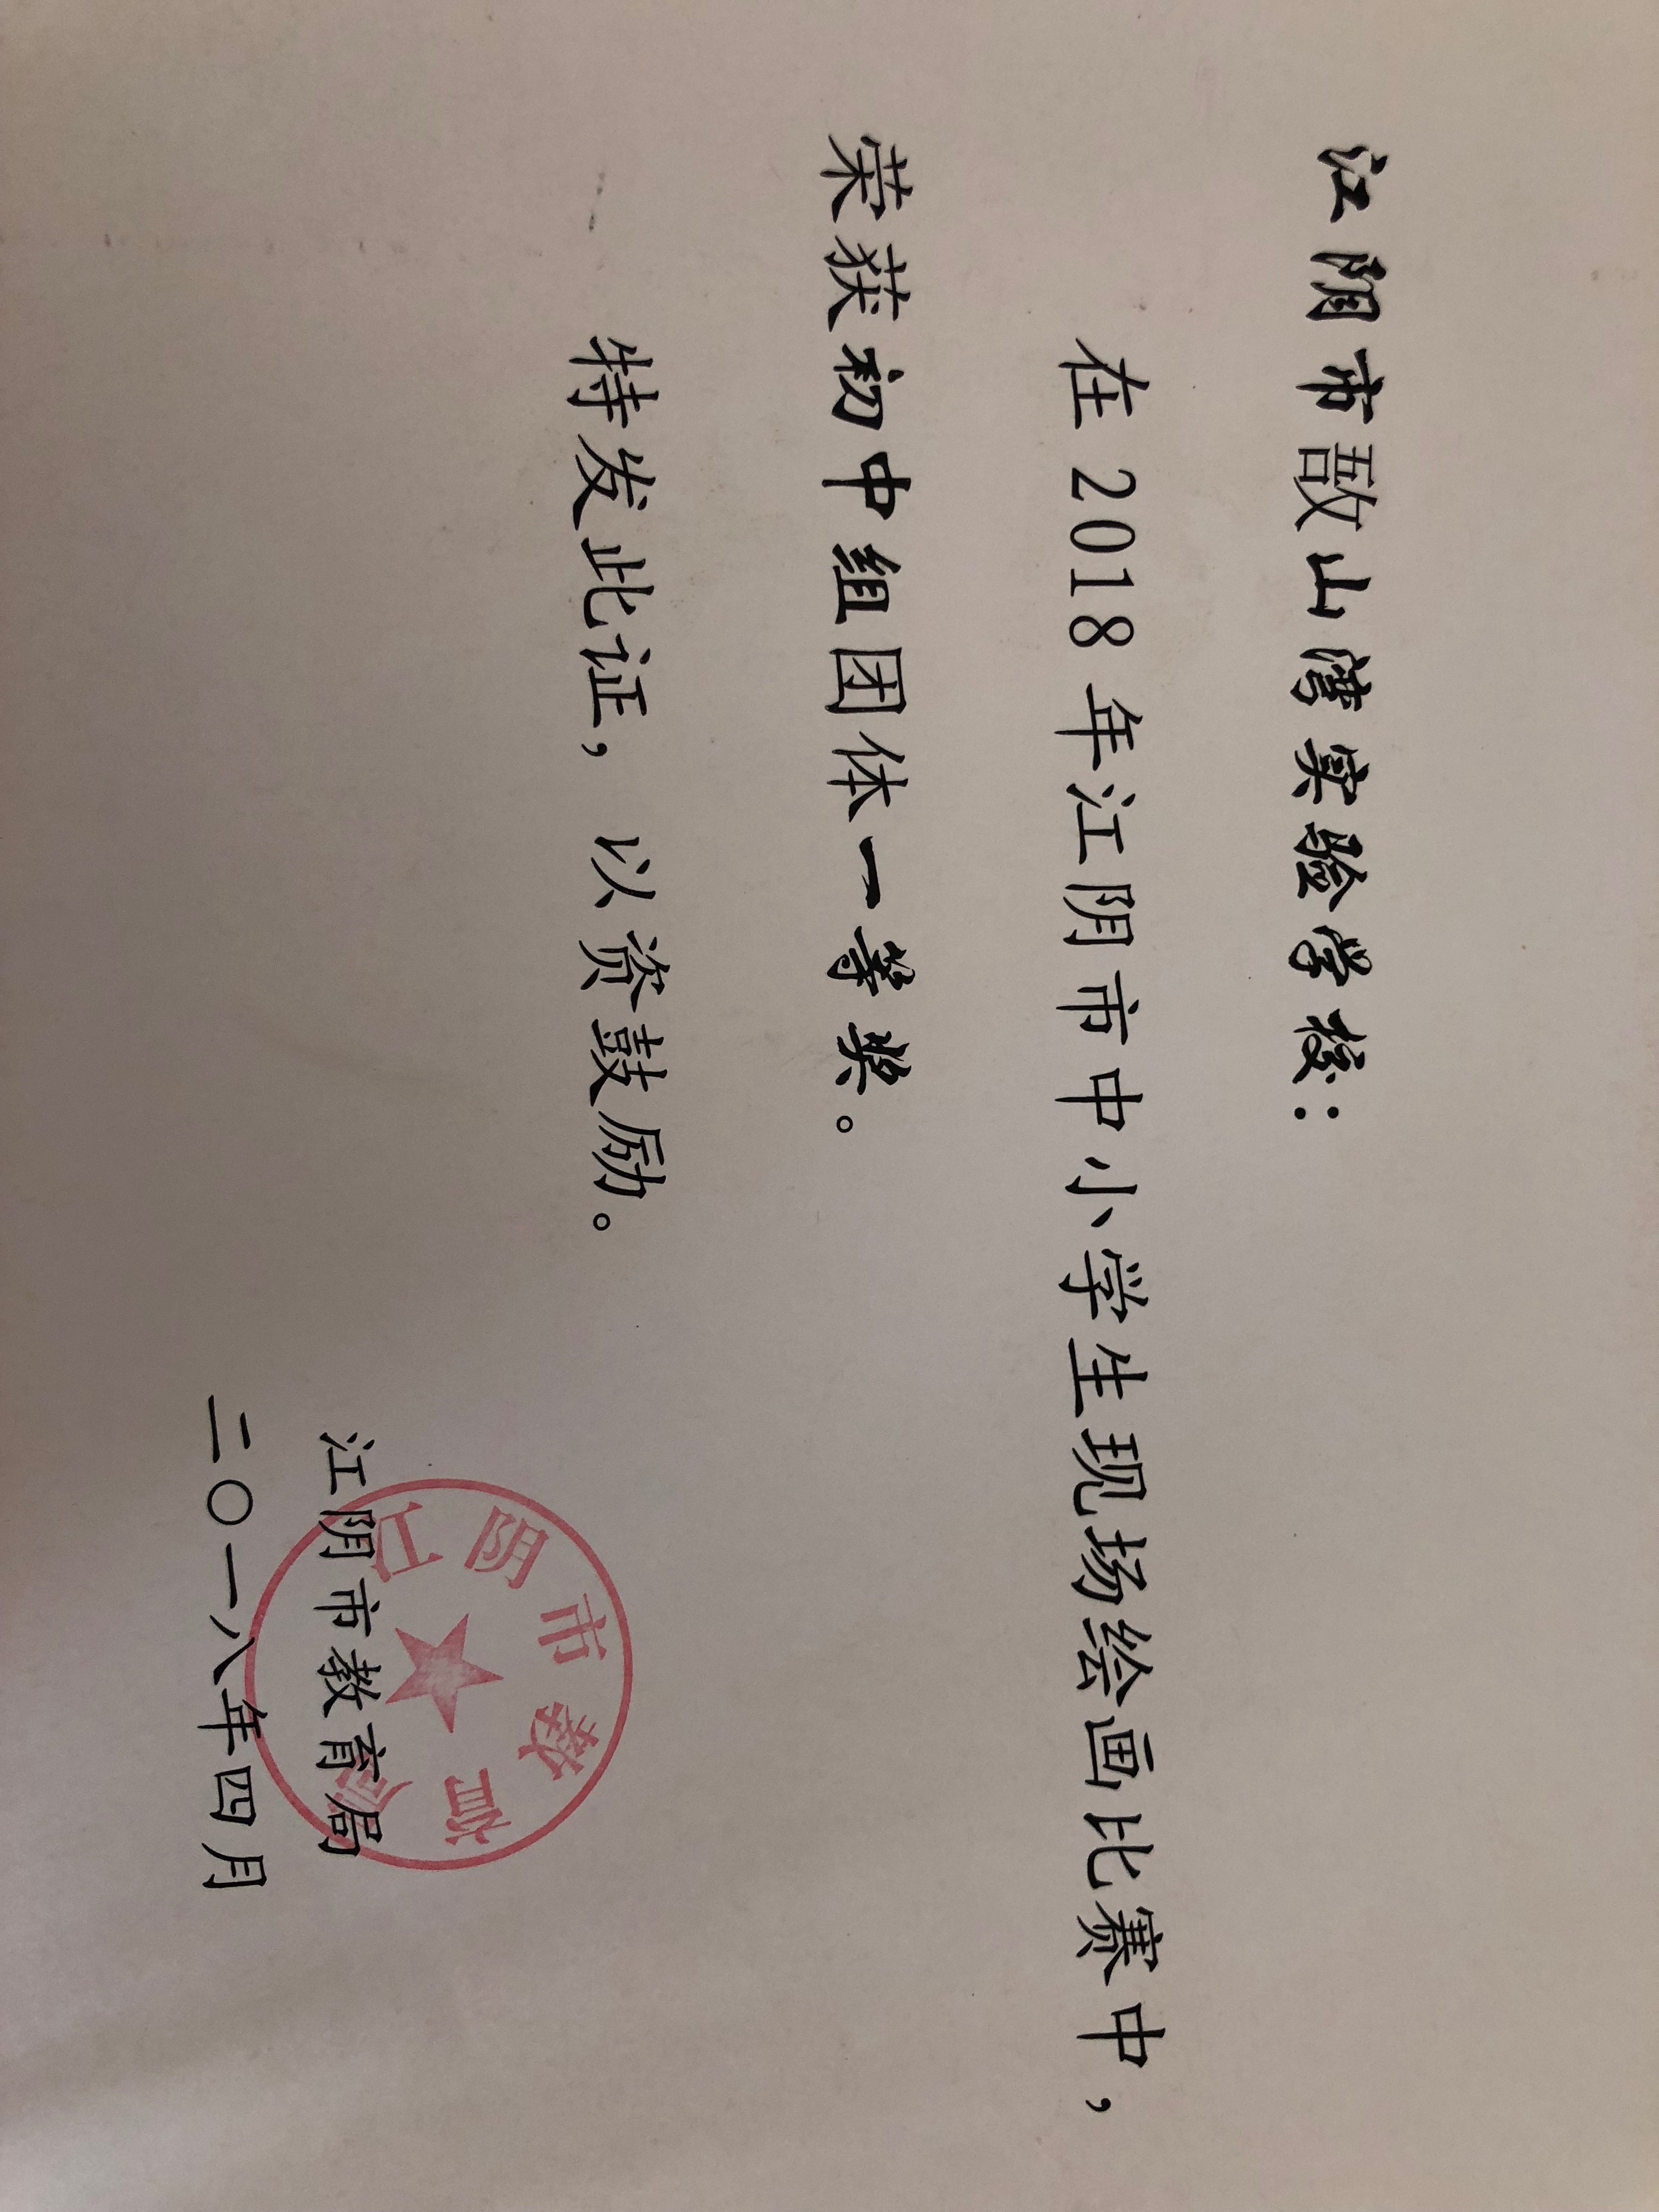 江阴市敔山湾实验学校：
在2018年江阴市中小学生现场绘画比赛中，
荣获初中组团体一等奖。
特发此证，以资鼓励。
江阴市教育局
二〇一八年四月
江阴市教育局